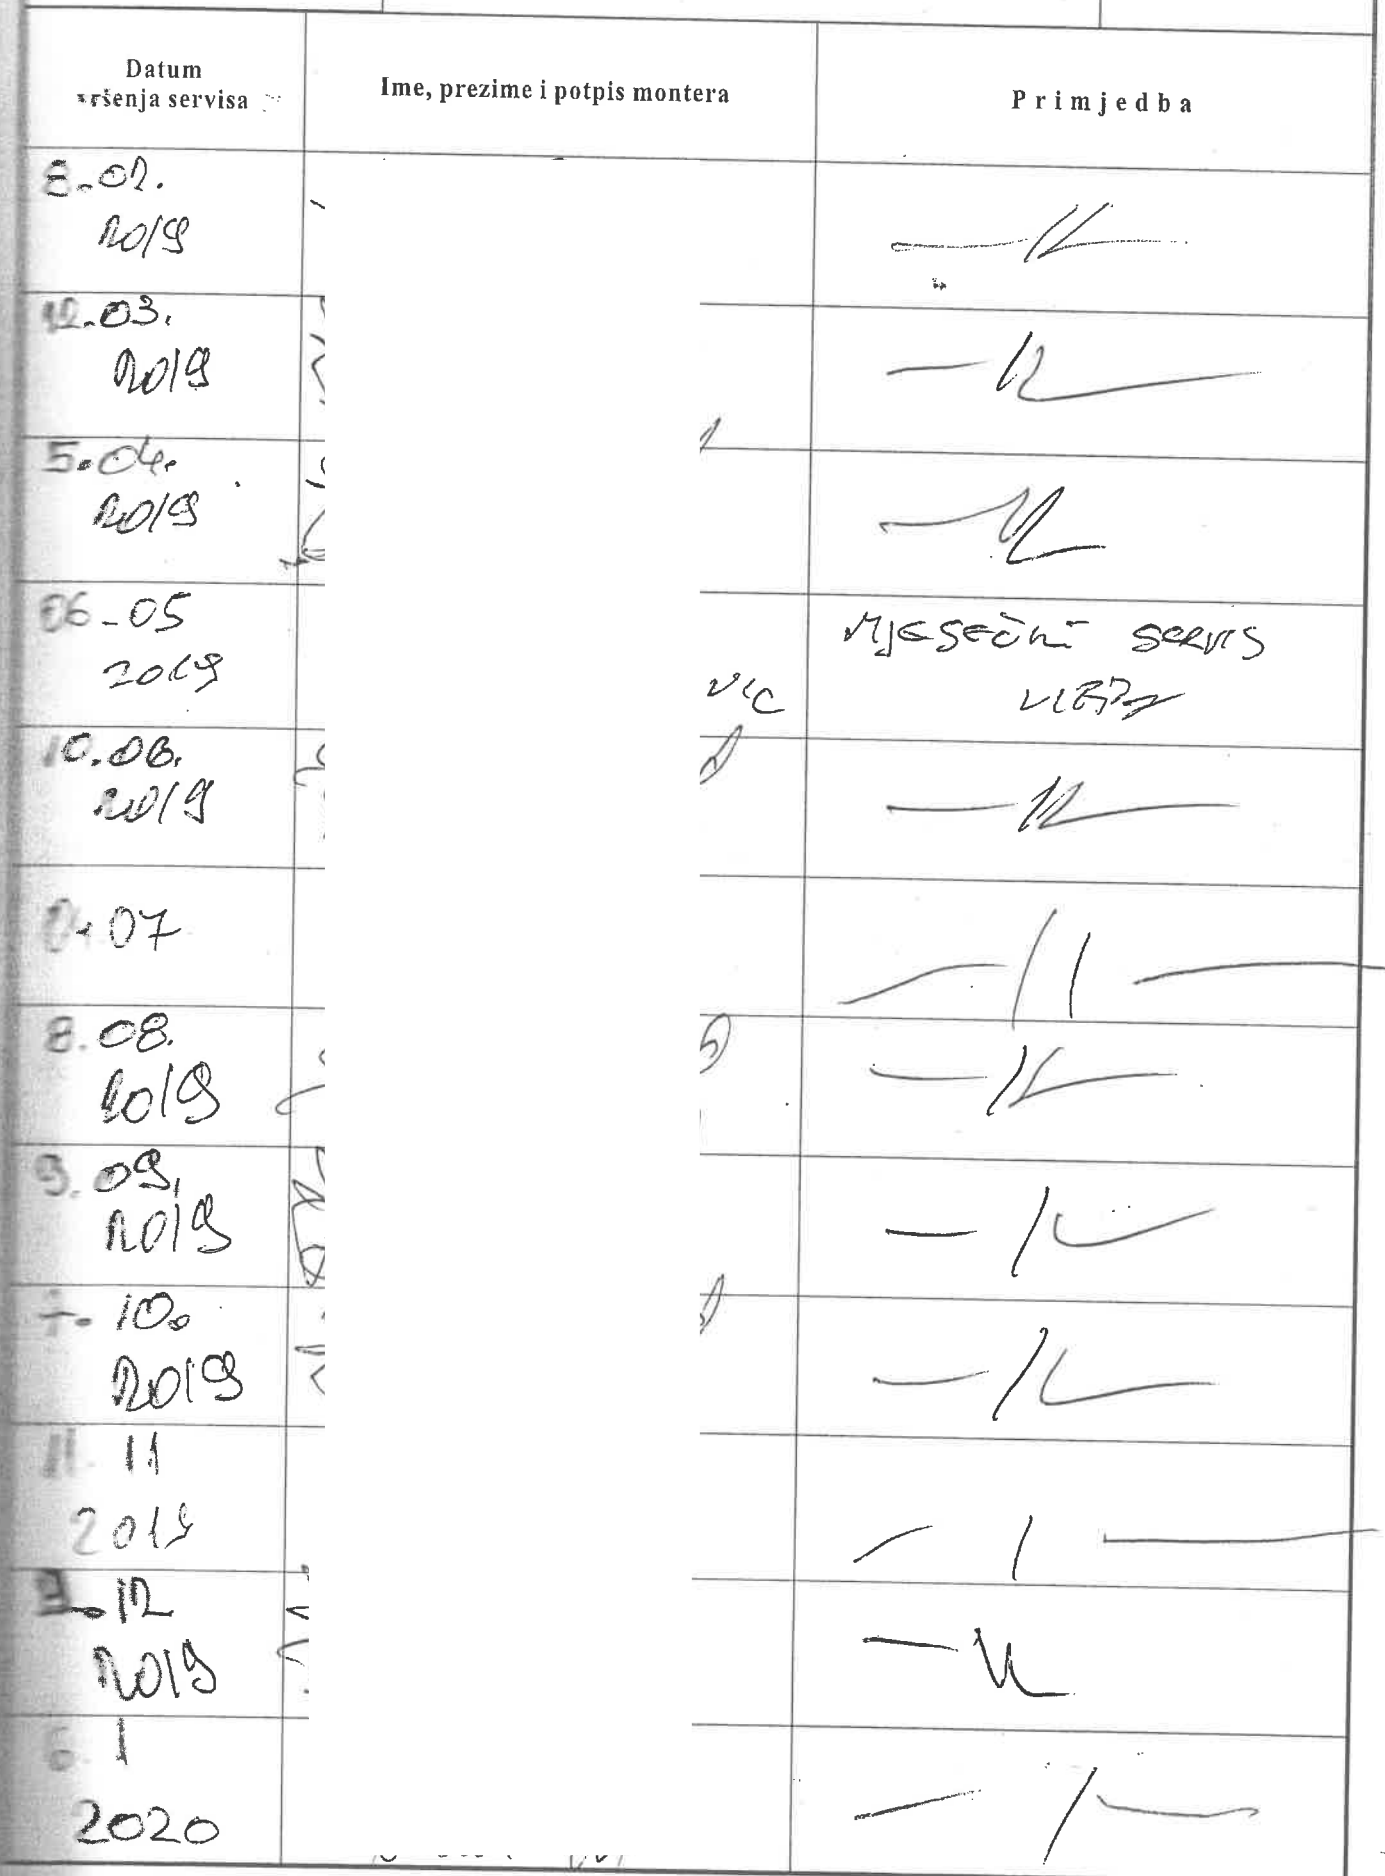 Datum
vršenja servisa
Ime, prezime i potpis montera
Primjedba
8.02.
2019
—//—
12.03.
2019
—//—
5.04.
2019
—//—
06-05
2019
vic
Mjesečni servis
10.06.
2019
—//—
04.07
—//—
8.08.
2019
—//—
9.09.
2019
—//—
7.10.
2019
—//—
11.11
2019
.12
2019
—//—
6.1
2020